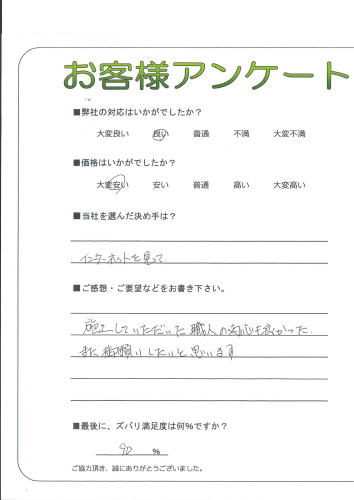 お客様アンケート
■弊社の対応はいかがでしたか？
大変良い 良い 普通 不満 大変不満
■価格はいかがでしたか？
大変安い 安い 普通 高い 大変高い
■当社を選んだ決め手は？
インターネットを見って
■ご感想・ご要望などをお書き下さい。
施工していただいた職人の対応も良かった.
また御願いしたいと思います
■最後に、ズバリ満足度は何％ですか？
90 %
ご協力頂き、誠にありがとうございました。